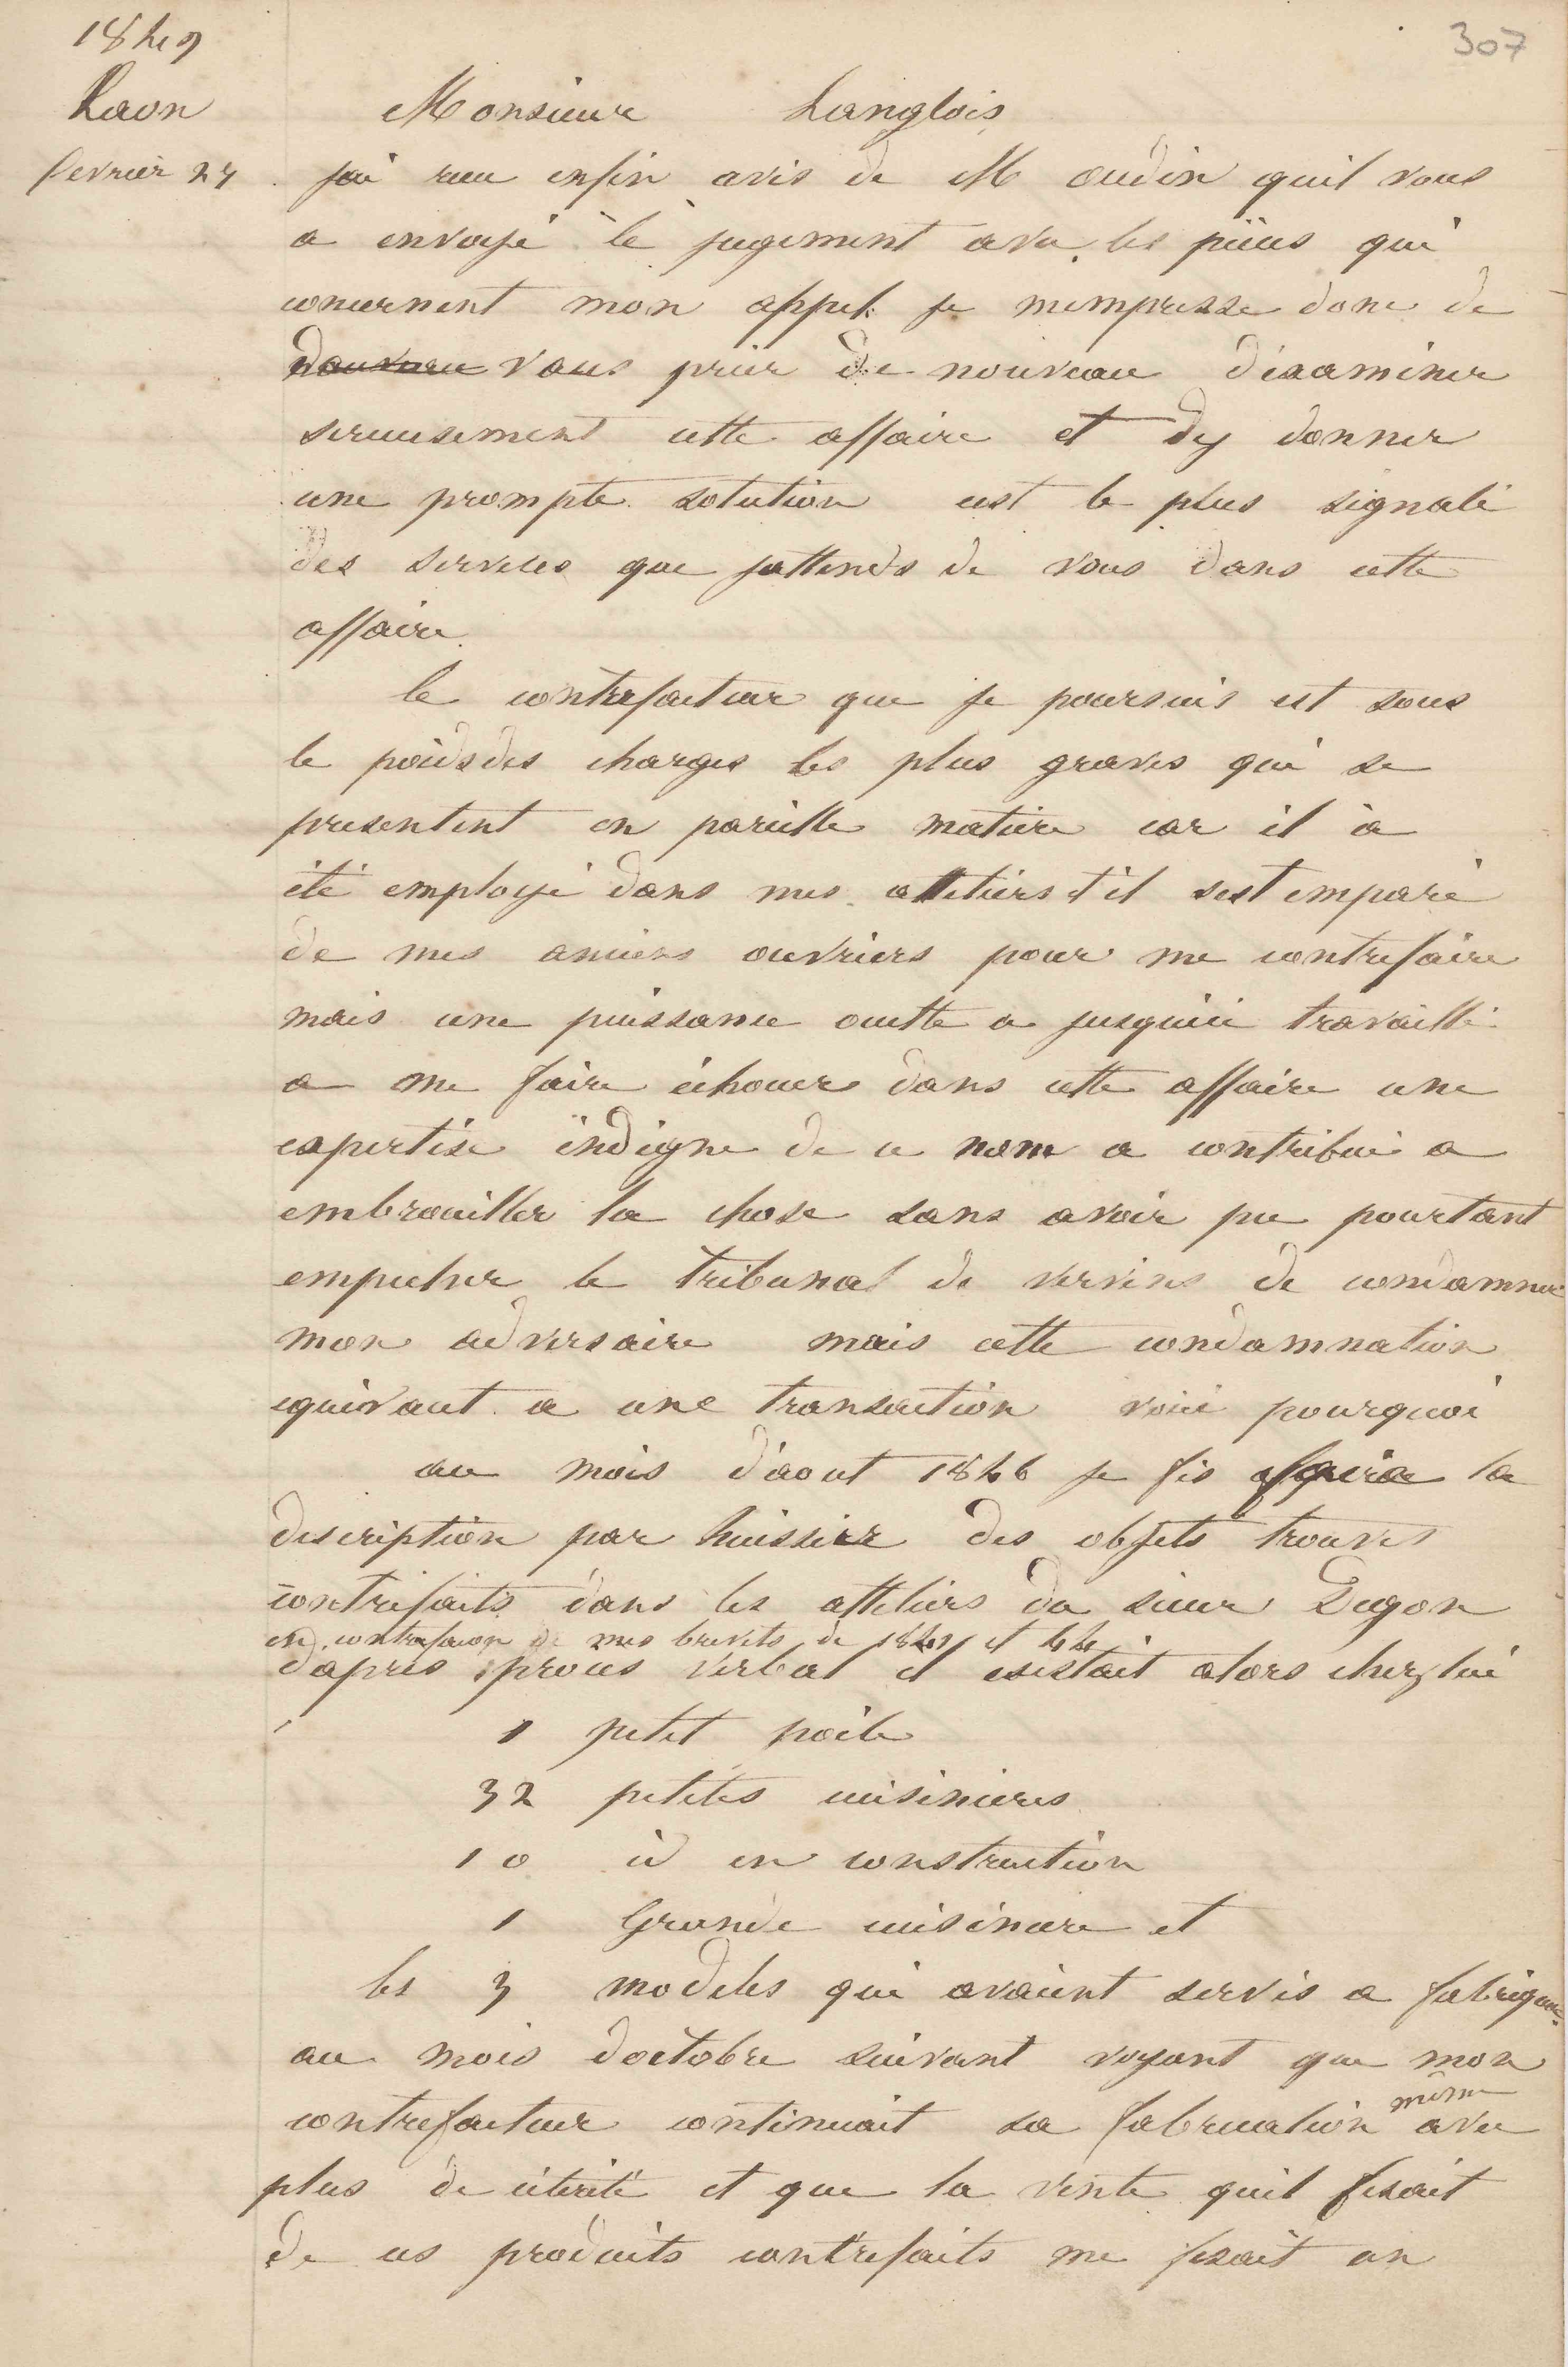 307
1849
Laon
fevrier 24
Monsieur Langlois
jai recu enfin avis de M oudin quil vous
a envoyé le jugement avec les pièces qui
concernent mon appel je mempresse donc de
vous prier de nouveau d'éxaminer
serieusement cette affaire et dy donner
une prompte solution cest le plus signalé
des services que jattends de vous dans cette
affaire.
le contrefacteur que je poursuis est sous
le poids des charges les plus graves qui se
presentent en pareille matiere car il à
été employé dans mes atteliers et il sest emparé
de mes anciens ouvriers pour me contrefaire
mais une puissance oculte a jusquici travaillé
a me faire échouer dans cette affaire une
expertise indigne de ce nom a contribué a
embrouiller la chose sans avoir pu pourtant
empecher le tribunal de vervins de condamner
mon adversaire mais cette condamnation
equivaut a une transaction voici pourquoi
au mois d'aout 1846 je fis faire la
description par huissier des objets trouvés
contrefaits dans les atteliers du sieur Degon
en contrefacon de mes brevets de 1841 et 44
dapres procès verbal il existait alors chez lui
1 petit poële
32 petites cuisinieres
10 id en construction
1 Grande cuisiniere et
les 3 modeles qui avaient servis a fabriquer.
au mois doctobre suivant voyant que mon
contrefacteur continuait sa fabrication même avec
plus de célérité et que la vente quil fesait
de ces produits contrefaits me fesait un